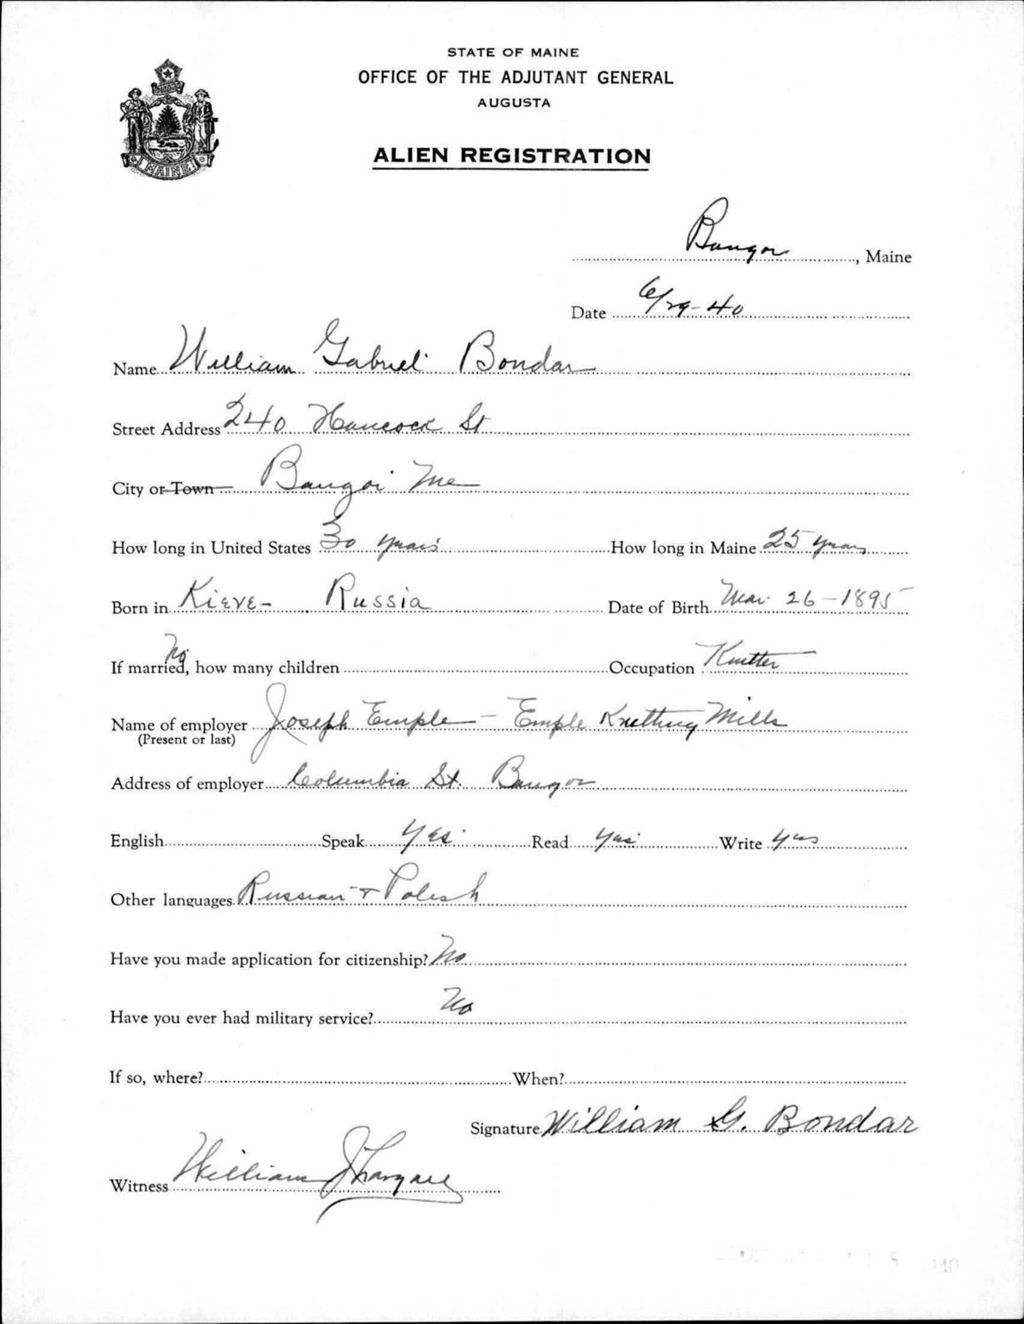 STATE OF MAINE
OFFICE OF THE ADJUTANT GENERAL
AUGUSTA
ALIEN REGISTRATION
MAINE
Bangor, Maine
Date 6/29-40
Name William Gabriel Bondar
Street Address 240 Hancock St
City or Town Bangor Me
How long in United States 30 years How long in Maine 25 years
Born in Kieve- Russia Date of Birth Mar. 26-1895
If married, how many children No Occupation Knitter
Name of employer Joseph Emple - Emple Knitting Mills
(Present or last)
Address of employer Columbia St. Bangor
English Speak Yes Read Yes Write Yes
Other languages Russian + Polish
Have you made application for citizenship? No
Have you ever had military service? No
If so, where? When?
Signature William G. Bondar
Witness William